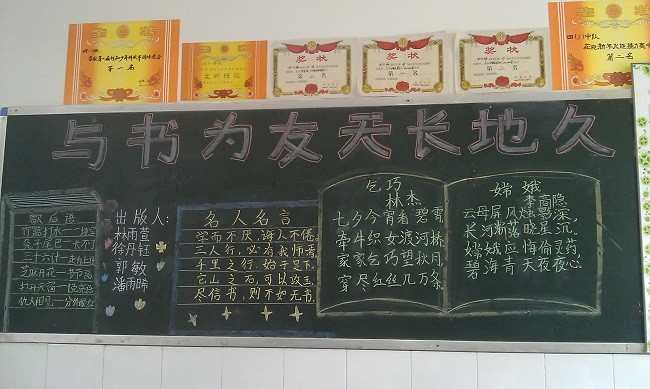 第一名
奖状
奖状
奖状
四(1)中队
第二名
与书为友天长地久
歇后语
竹篮打水一场空
兔子尾巴—长不了
三十六计—走为上计
芝麻开花—节节高
仇人相见—分外眼红
出版人:
林雨萱
徐丹钰
郭敏
潘雨晞
名人名言
学而不厌,诲人不倦。
三人行,必有我师焉
千里之行,始于足下。
它山之石,可以攻玉。
尽信书,则不如无书。
乞巧
林杰
七夕今宵看碧霄
牵牛织女渡河桥
家家乞巧望秋月
穿尽红丝几万条
嫦娥
李商隐
云母屏风烛影深,
长河渐落晓星沉.
嫦娥应悔偷灵药,
碧海青天夜夜心,